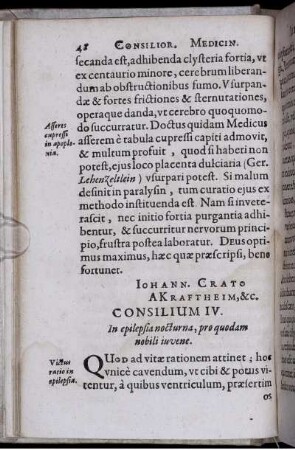 48 CONSILIOR. MEDICIN.
secanda est, adhibenda clysteria fortia, vt
ex centaurio minore, cerebrum liberan-
dum ab obstructionibus sumo. Vsurpan-
dæ & fortes frictiones & sternutationes,
operaque danda, vt cerebro quoquomo-
do succurratur. Doctus quidam Medicus
Asseres
cupressi
in apople-
xia.
asserem è tabula cupressi capiti admovit,
& multum profuit, quod si haberi non
potest, ejus loco placenta dulciaria (Ger.
Lebenzeltlein) vsurpari potest. Si malum
desinit in paralysin, tum curatio ejus ex
methodo instituenda est. Nam si invete-
rascit, nec initio fortia purgantia adhi-
bentur, & succurritur nervorum princi-
pio, frustra postea laboratur. DEUS opti-
mus maximus, hæc quæ præscripsi, bene
fortunet.
IOHANN. CRATO
A KRAFTHEIM, &c.
CONSILIUM IV.
In epilepsia nocturna, pro quodam
nobili iuvene.
Victus
ratio in
epilepsia.
QUOD ad vitæ rationem attinet; hoc
vnicè cavendum, vt cibi & potus vi-
tentur, à quibus ventriculum, præsertim
os